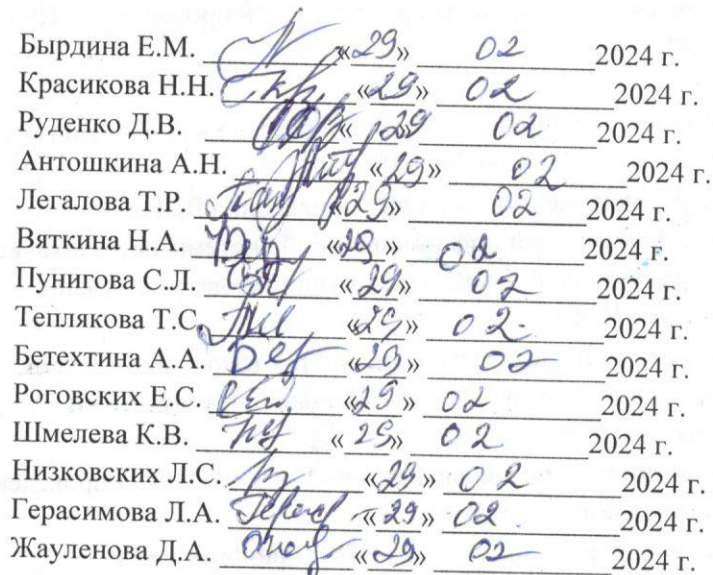 Бырдина Е.М. «29» 02 2024 г.
Красикова Н.Н. «29» 02 2024 г.
Руденко Д.В. «29 02 2024 г.
Антошкина А.Н. «29» 02 2024 г.
Легалова Т.Р. «29» 02 2024 г.
Вяткина Н.А. «29» 02 2024 г.
Пунигова С.Л. «29» 02 2024 г.
Теплякова Т.С. «29» 02. 2024 г.
Бетехтина А.А. «29» 02 2024 г.
Роговских Е.С. «29» 02 2024 г.
Шмелева К.В. «29» 02 2024 г.
Низковских Л.С. «29» 02 2024 г.
Герасимова Л.А. «29» 02 2024 г.
Жауленова Д.А. «29» 02 2024 г.